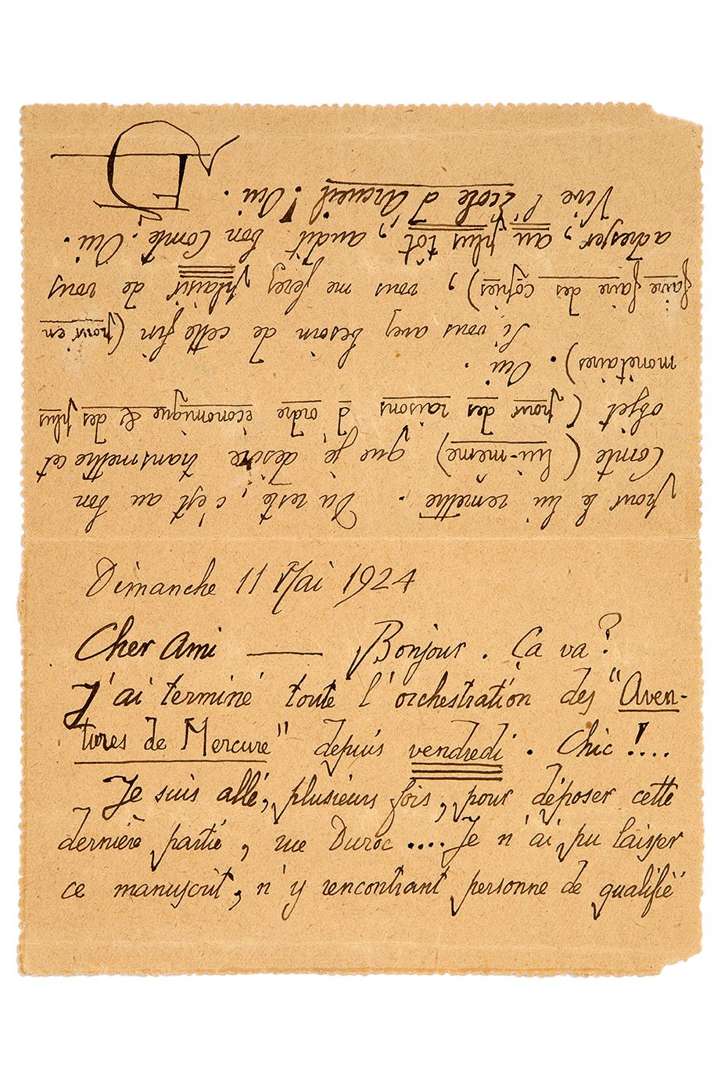 Dimanche 11 Mai 1924
Cher Ami —— Bonjour. Ça va?
J'ai terminé toute l'orchestration des "Aven-
tures de Mercure" depuis vendredi. Chic!....
Je suis allé, plusieurs fois, pour déposer cette
dernière partie, rue Duroc.... Je n'ai pu laisser
ce manuscrit, n'y rencontrant personne de qualifié
pour le lui remettre. Du reste, c'est au bon
Comte (lui-même) que je désire transmettre cet
objet (pour des raisons d'ordre économique & des plus
monétaires). Oui.
Si vous avez besoin de cette fin (pour en
faire faire des copies), vous me ferez plaisir de vous
adresser, au plus tôt, audit bon Comte. Oui.
Vive l'École d'Arcueil! Oui.
ES